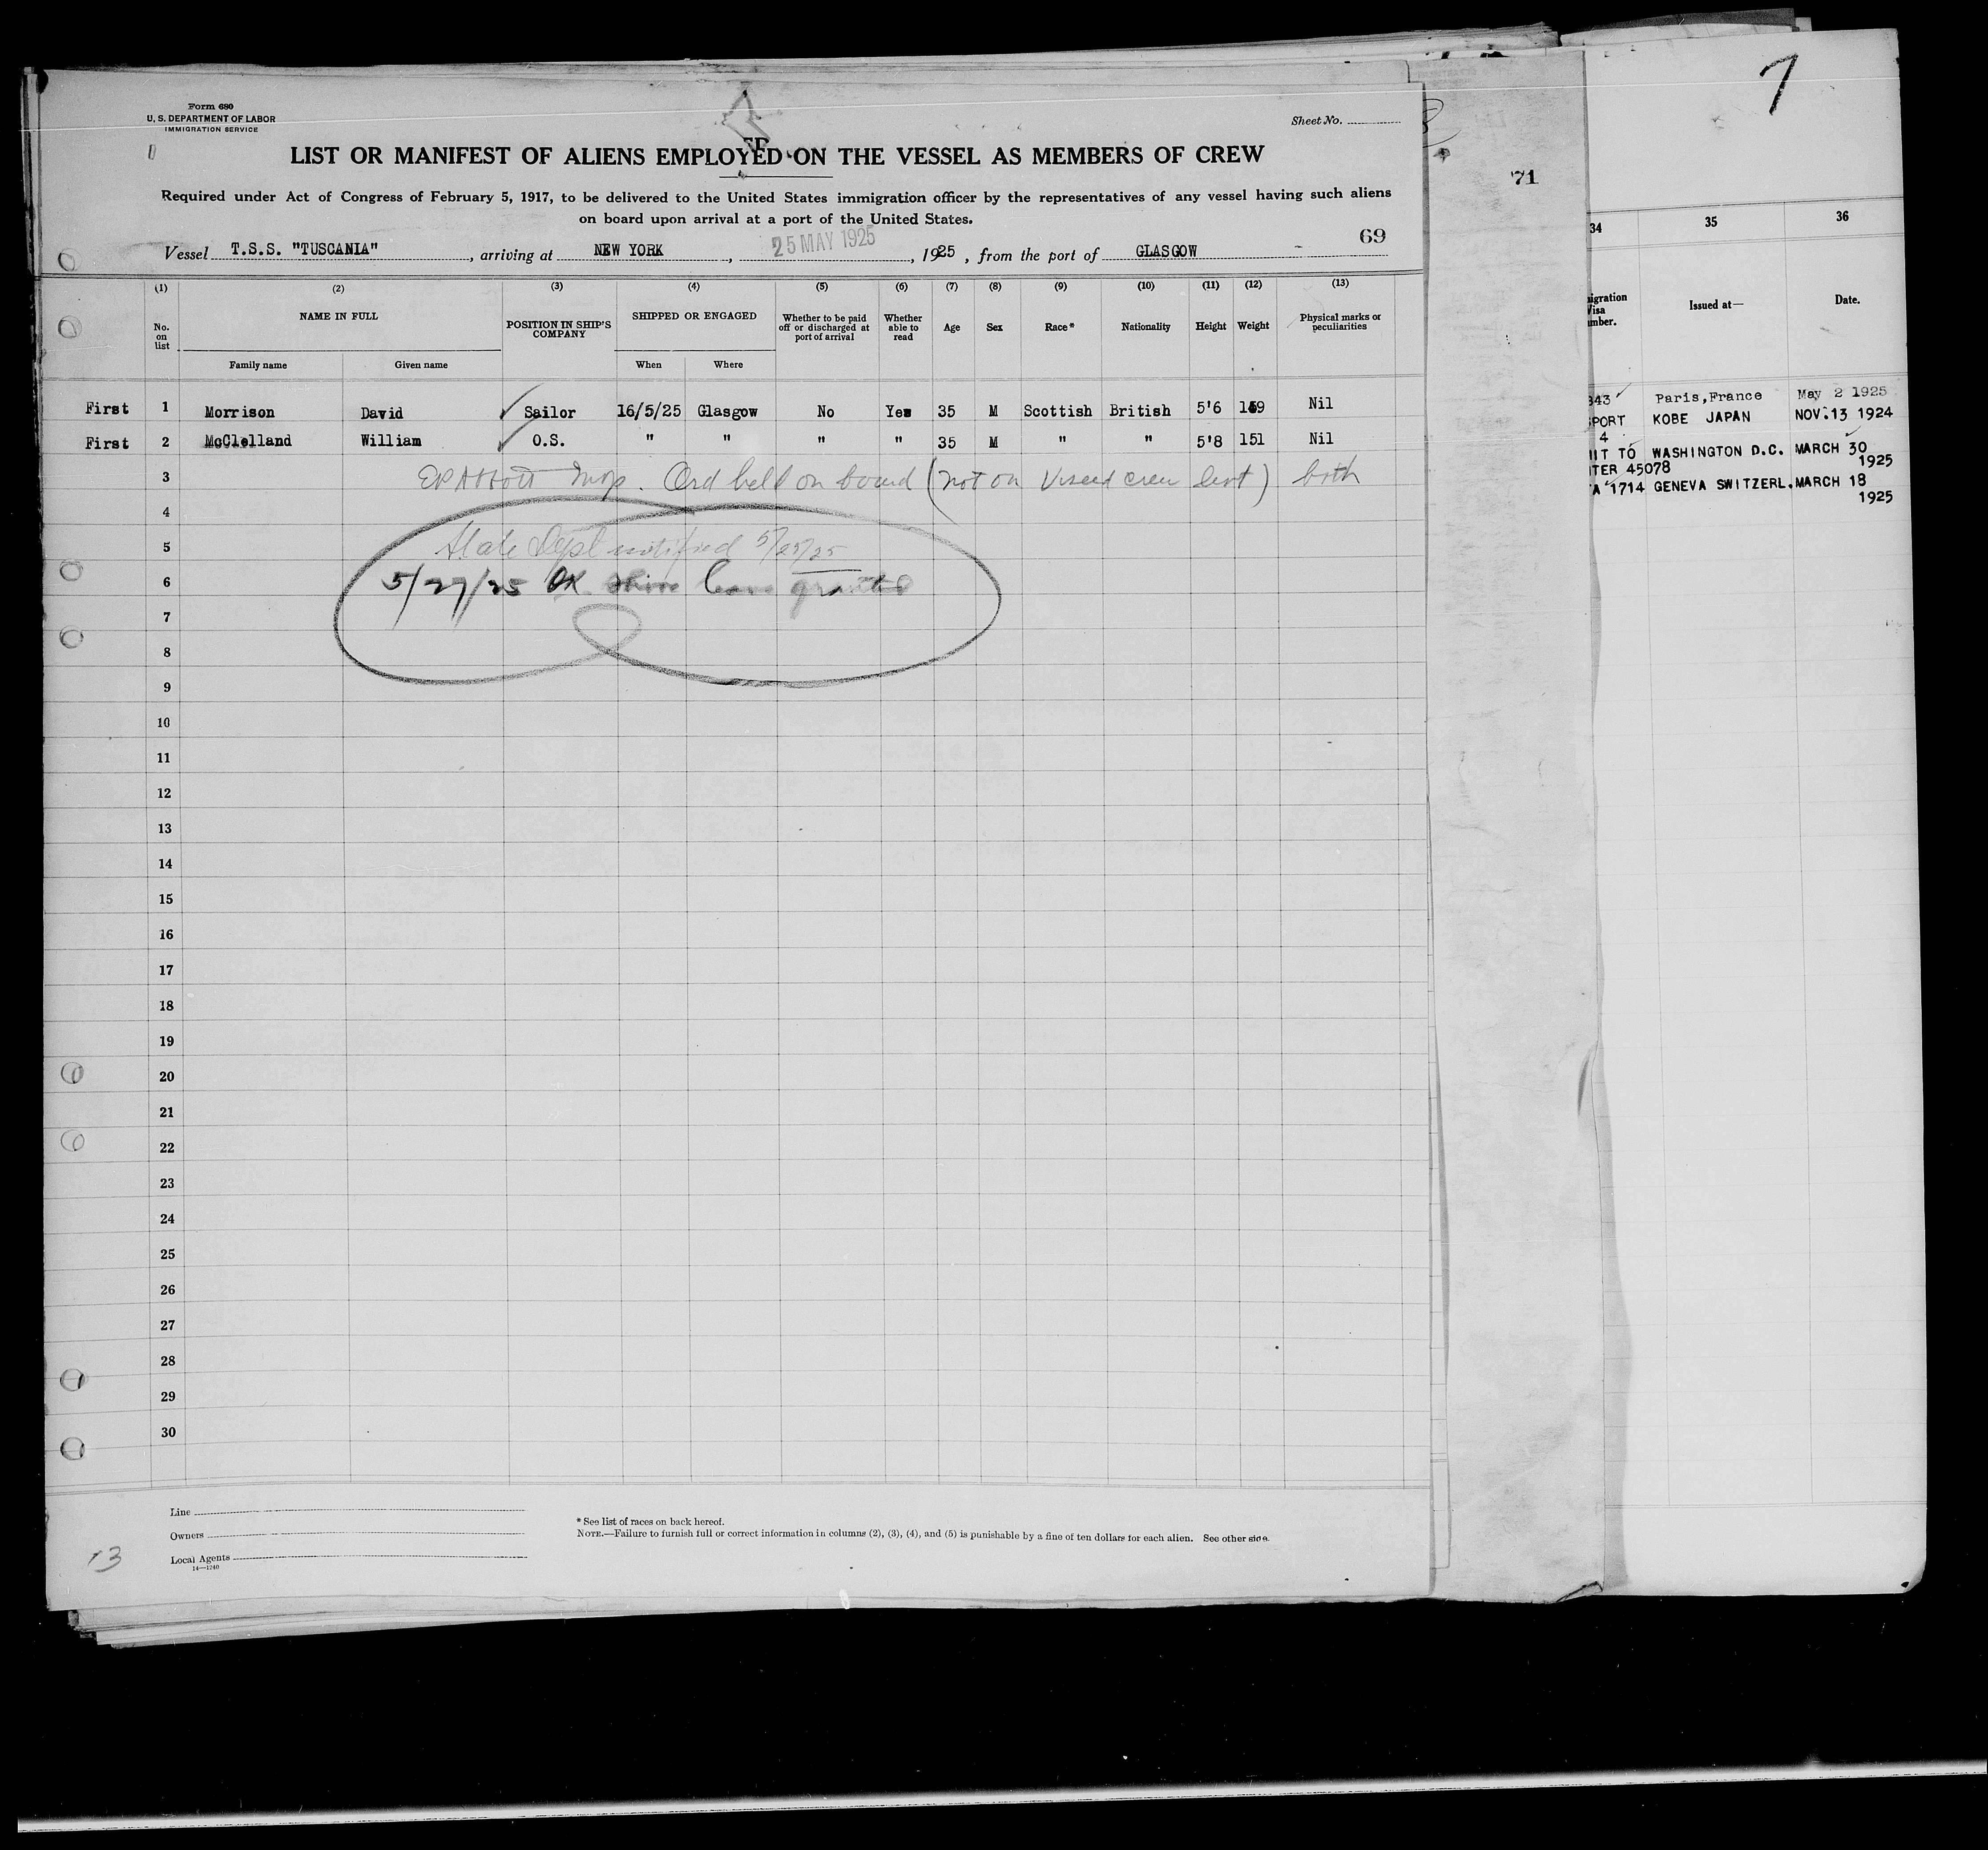 Form 680
U. S. DEPARTMENT OF LABOR
IMMIGRATION SERVICE
Sheet No.
LIST OR MANIFEST OF ALIENS EMPLOYED ON THE VESSEL AS MEMBERS OF CREW
Required under Act of Congress of February 5, 1917, to be delivered to the United States immigration officer by the representatives of any vessel having such aliens
on board upon arrival at a port of the United States.
69
Vessel T.S.S. "TUSCANIA", arriving at NEW YORK, 25 MAY 1925, 1925, from the port of GLASGOW
(1) (2) (3) (4) (5) (6) (7) (8) (9) (10) (11) (12) (13)
No. on list
NAME IN FULL
Family name
Given name
POSITION IN SHIP'S COMPANY
SHIPPED OR ENGAGED
When
Where
Whether to be paid off or discharged at port of arrival
Whether able to read
Age
Sex
Race*
Nationality
Height
Weight
Physical marks or peculiarities
First 1 Morrison David Sailor 16/5/25 Glasgow No Yes 35 M Scottish British 5'6 159 Nil
First 2 McClelland William O.S. " " " " 35 M " " 5'8 151 Nil
3 Insp. Ord held on board (not on Viseed crew list) both
4
5 State Dept notified 5/25/25
6 5/27/25 OK Shore leave granted
7
8
9
10
11
12
13
14
15
16
17
18
19
20
21
22
23
24
25
26
27
28
29
30
Line
Owners
Local Agents
14—1240
* See list of races on back hereof.
NOTE.—Failure to furnish full or correct information in columns (2), (3), (4), and (5) is punishable by a fine of ten dollars for each alien. See other side.
13
71
7
34 35 36
igration
Visa
mber.
Issued at—
Date.
343 Paris,France May 2 1925
PORT KOBE JAPAN NOV.13 1924
4
IT TO WASHINGTON D.C. MARCH 30
TER 45078 1925
A 1714 GENEVA SWITZERL. MARCH 18
1925